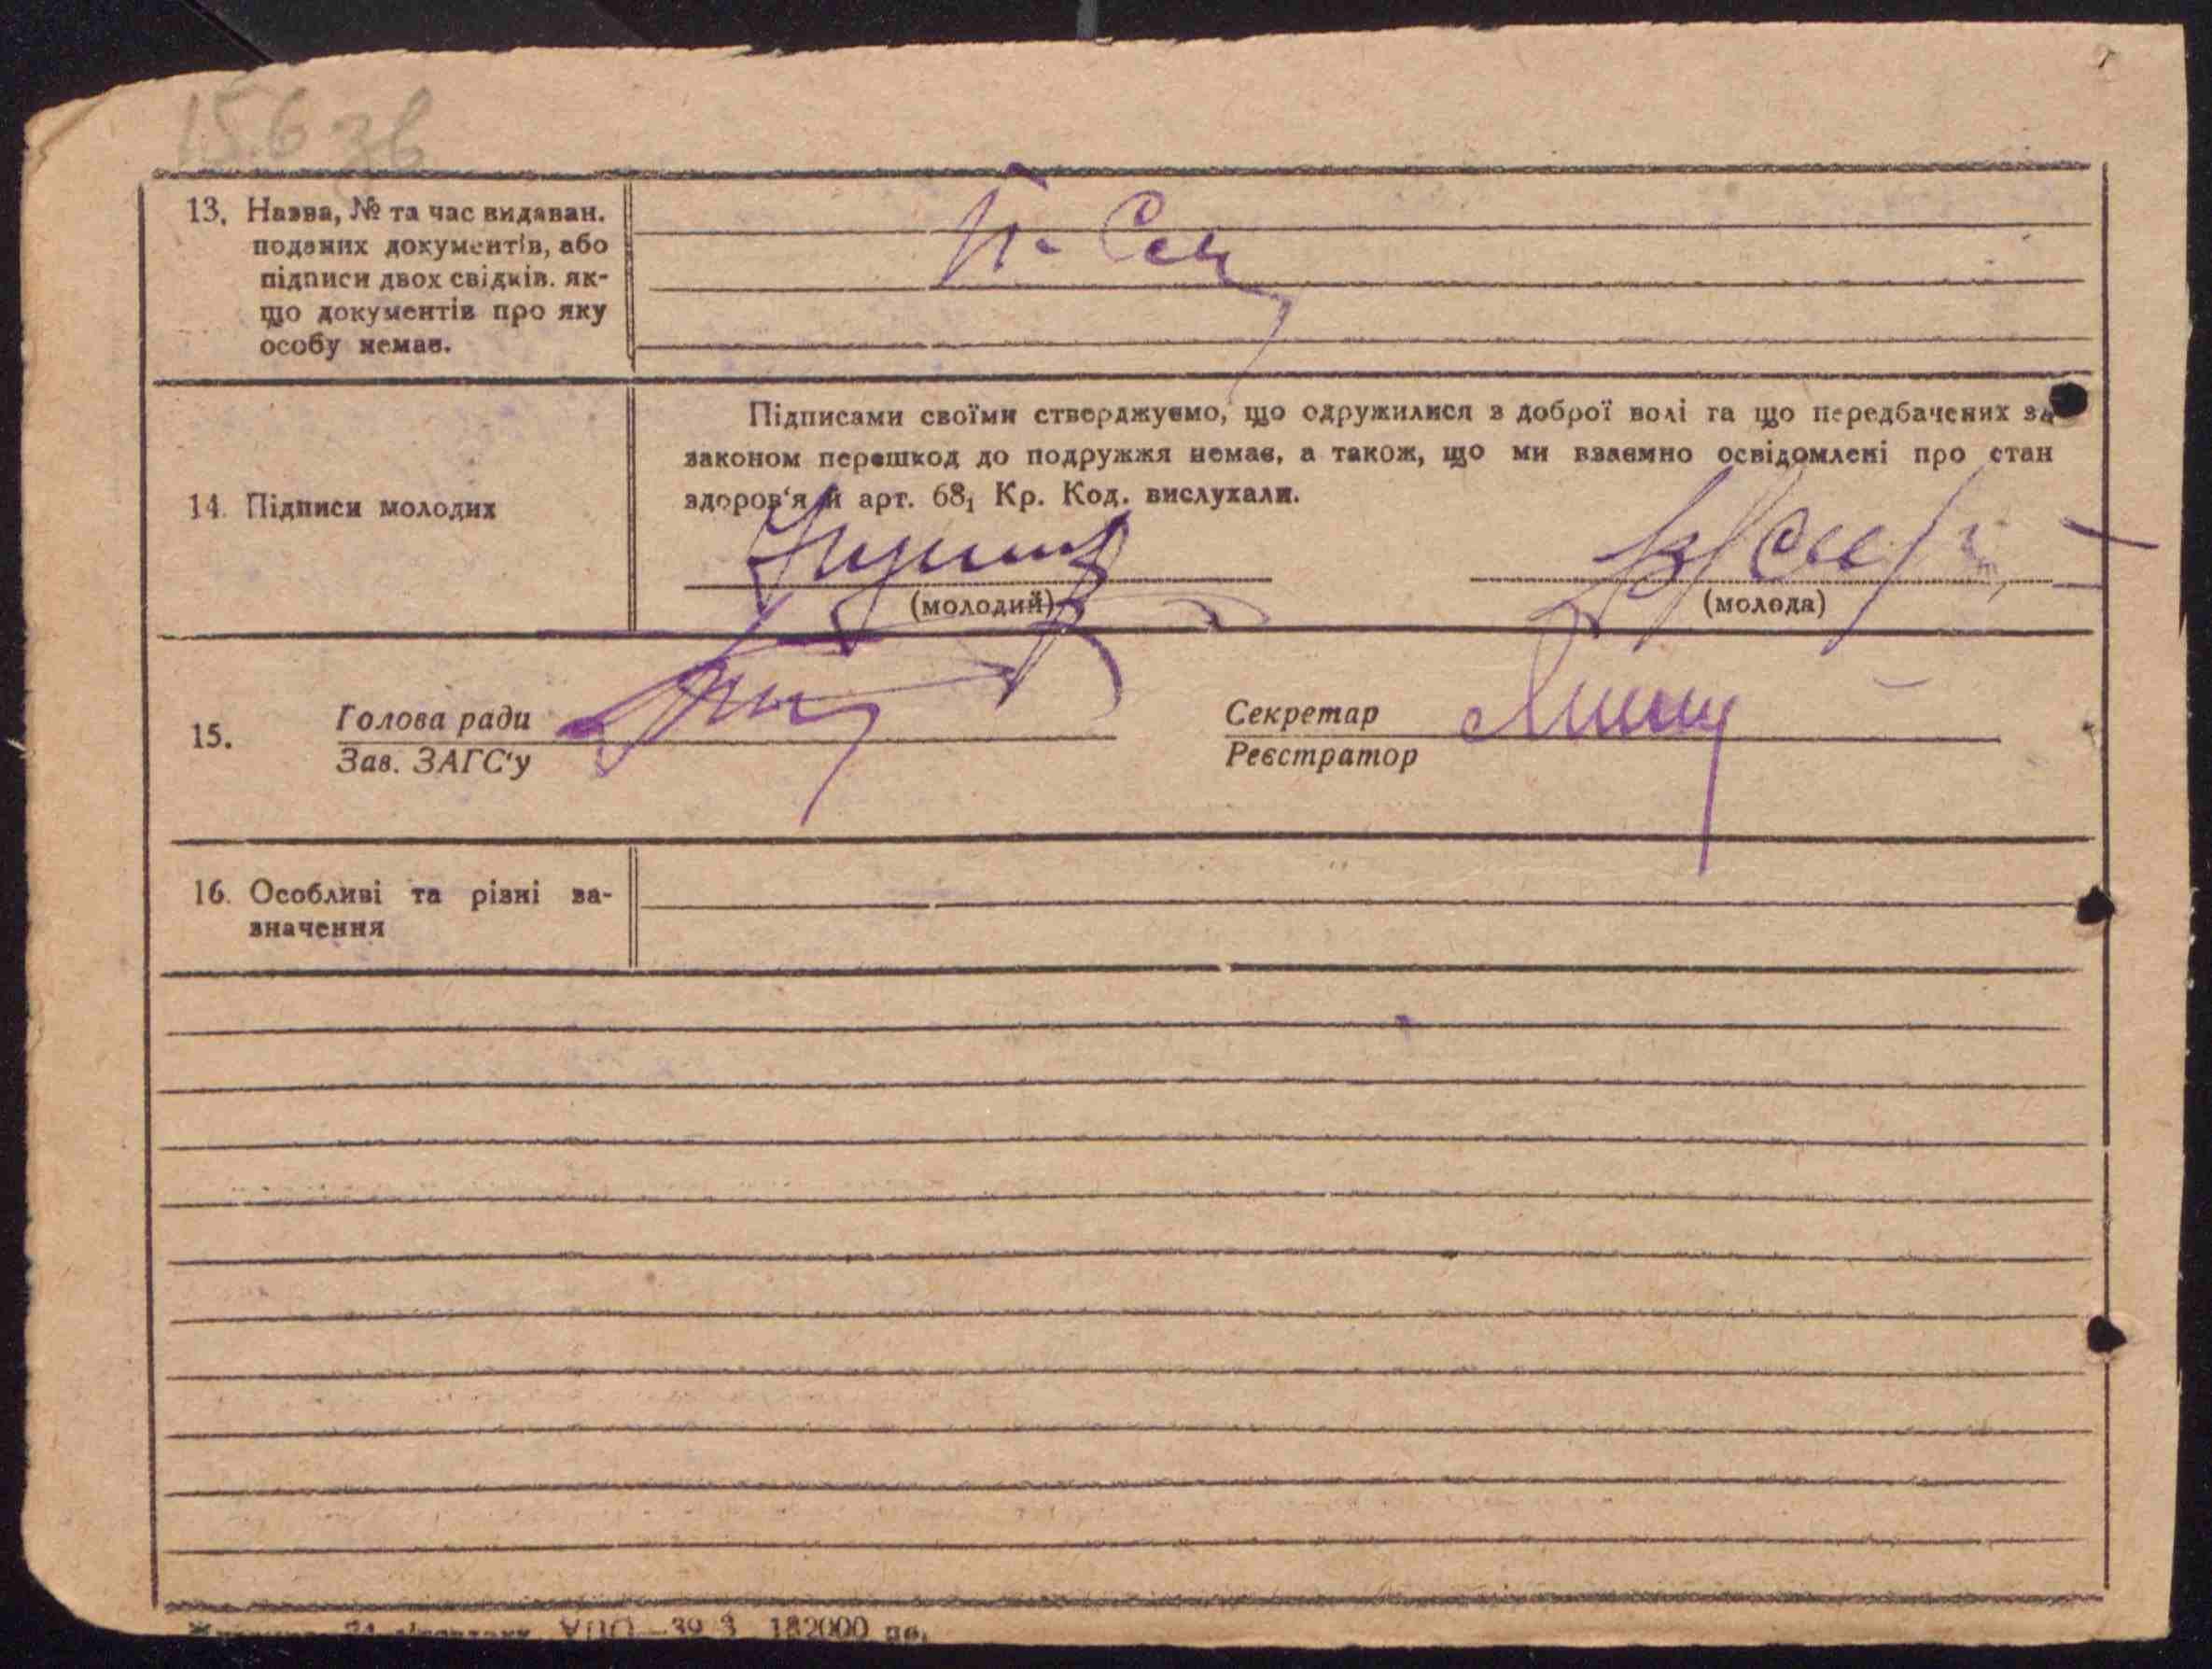 15.6 зв
13. Назва, № та час видаван.
поданих документів, або
підписи двох свідків, як-
що документів про яку
особу немає.
Підписами своїми стверджуємо, що одружилися з доброї волі та що передбачених за
законом перешкод до подружжя немає, а також, що ми взаємно освідомлені про стан
здоров'я й арт. 68₁ Кр. Код. вислухали.
14. Підписи молодих
(молодий) (молода)
15. Голова ради Секретар
Зав. ЗАГС'у Реєстратор
16. Особливі та різні за-
значення
182000 пр.